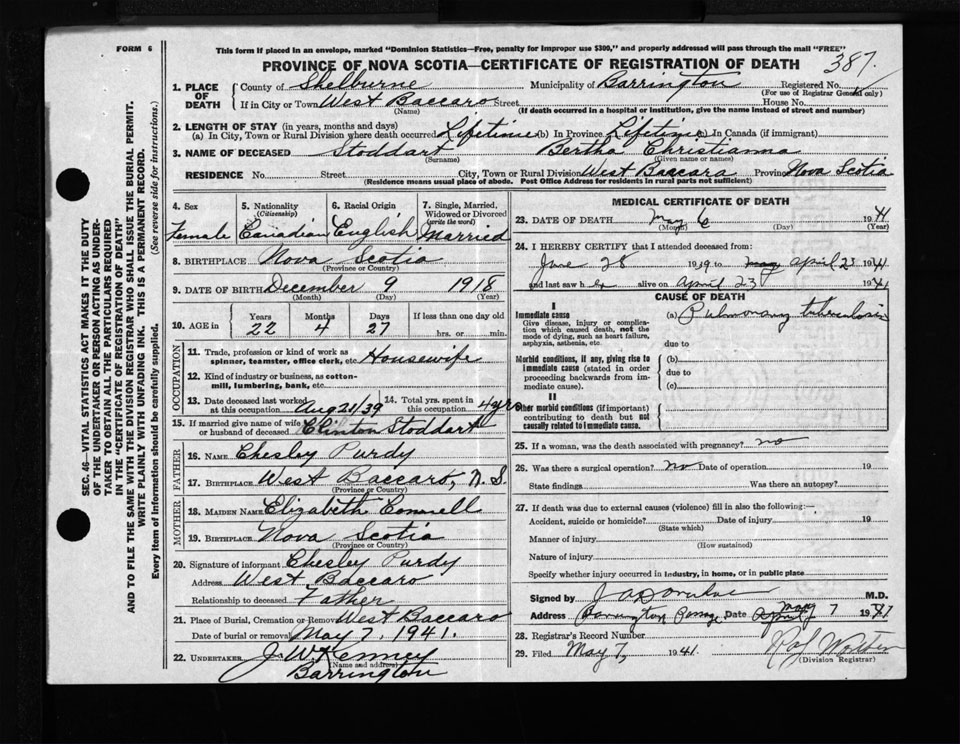 FORM 6
This form if placed in an envelope, marked "Dominion Statistics—Free, penalty for improper use $300," and properly addressed will pass through the mail "FREE"
PROVINCE OF NOVA SCOTIA—CERTIFICATE OF REGISTRATION OF DEATH
387
SEC. 46—VITAL STATISTICS ACT MAKES IT THE DUTY
OF THE UNDERTAKER OR PERSON ACTING AS UNDER-
TAKER TO OBTAIN ALL THE PARTICULARS REQUIRED
IN THE "CERTIFICATE OF REGISTRATION OF DEATH"
AND TO FILE THE SAME WITH THE DIVISION REGISTRAR WHO SHALL ISSUE THE BURIAL PERMIT.
WRITE PLAINLY WITH UNFADING INK. THIS IS A PERMANENT RECORD.
Every item of Information should be carefully supplied. (See reverse side for instructions.)
1. PLACE OF DEATH
County of Shelburne Municipality of Barrington Registered No.
(For use of Registrar General only)
If in City or Town West Baccaro Street House No.
(Name) (If death occurred in a hospital or institution, give the name instead of street and number)
2. LENGTH OF STAY (in years, months and days)
(a) In City, Town or Rural Division where death occurred Lifetime (b) In Province Lifetime (c) In Canada (if immigrant)
3. NAME OF DECEASED Stoddart Bertha Christianna
(Surname) (Given name or names)
RESIDENCE No. Street City, Town or Rural Division West Baccara Province Nova Scotia
(Residence means usual place of abode. Post Office Address for residents in rural parts not sufficient)
4. Sex Female
5. Nationality (Citizenship) Canadian
6. Racial Origin English
7. Single, Married, Widowed or Divorced (write the word) Married
8. BIRTHPLACE Nova Scotia
(Province or Country)
9. DATE OF BIRTH December 9 1918
(Month) (Day) (Year)
10. AGE in Years 22 Months 4 Days 27 If less than one day old hrs. or min.
OCCUPATION
11. Trade, profession or kind of work as spinner, teamster, office clerk, etc. Housewife
12. Kind of industry or business, as cotton-mill, lumbering, bank, etc.
13. Date deceased last worked at this occupation Aug 28/39
14. Total yrs. spent in this occupation 4 yrs
15. If married give name of wife or husband of deceased Clinton Stoddart
FATHER
16. NAME Chesley Purdy
17. BIRTHPLACE West Baccaro, N.S.
(Province or Country)
MOTHER
18. MAIDEN NAME Elizabeth Connell
19. BIRTHPLACE Nova Scotia
(Province or Country)
20. Signature of informant Chesley Purdy
Address West Baccaro
Relationship to deceased Father
21. Place of Burial, Cremation or Removal West Baccaro
Date of burial or removal May 7, 1941.
22. UNDERTAKER J. W. Kenney
(Name and address)
Barrington
MEDICAL CERTIFICATE OF DEATH
23. DATE OF DEATH May 6 1941
(Month) (Day) (Year)
24. I HEREBY CERTIFY that I attended deceased from:
June 28 1939 to may April 23 1941
and last saw her alive on April 23 1941
CAUSE OF DEATH
I
Immediate cause
Give disease, injury or complication which caused death, not the mode of dying, such as heart failure, asphyxia, asthenia, etc.
(a) Pulmonary tuberculosis
due to
Morbid conditions, if any, giving rise to immediate cause (stated in order proceeding backwards from immediate cause).
(b)
due to
(c)
II
Other morbid conditions (if important) contributing to death but not causally related to immediate cause.
25. If a woman, was the death associated with pregnancy? no
26. Was there a surgical operation? No Date of operation 19
State findings Was there an autopsy?
27. If death was due to external causes (violence) fill in also the following:—
Accident, suicide or homicide? Date of injury 19
(State which)
Manner of injury
(How sustained)
Nature of injury
Specify whether injury occurred in industry, in home, or in public place
Signed by M.D.
Address Barrington Passage Date April may 7 1941
28. Registrar's Record Number
29. Filed May 7, 1941.
(Division Registrar)